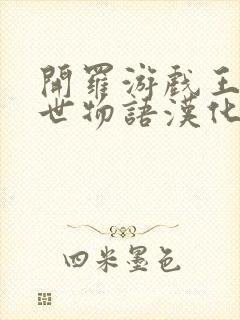 開羅游戲王
世物語漢化
四米墨色